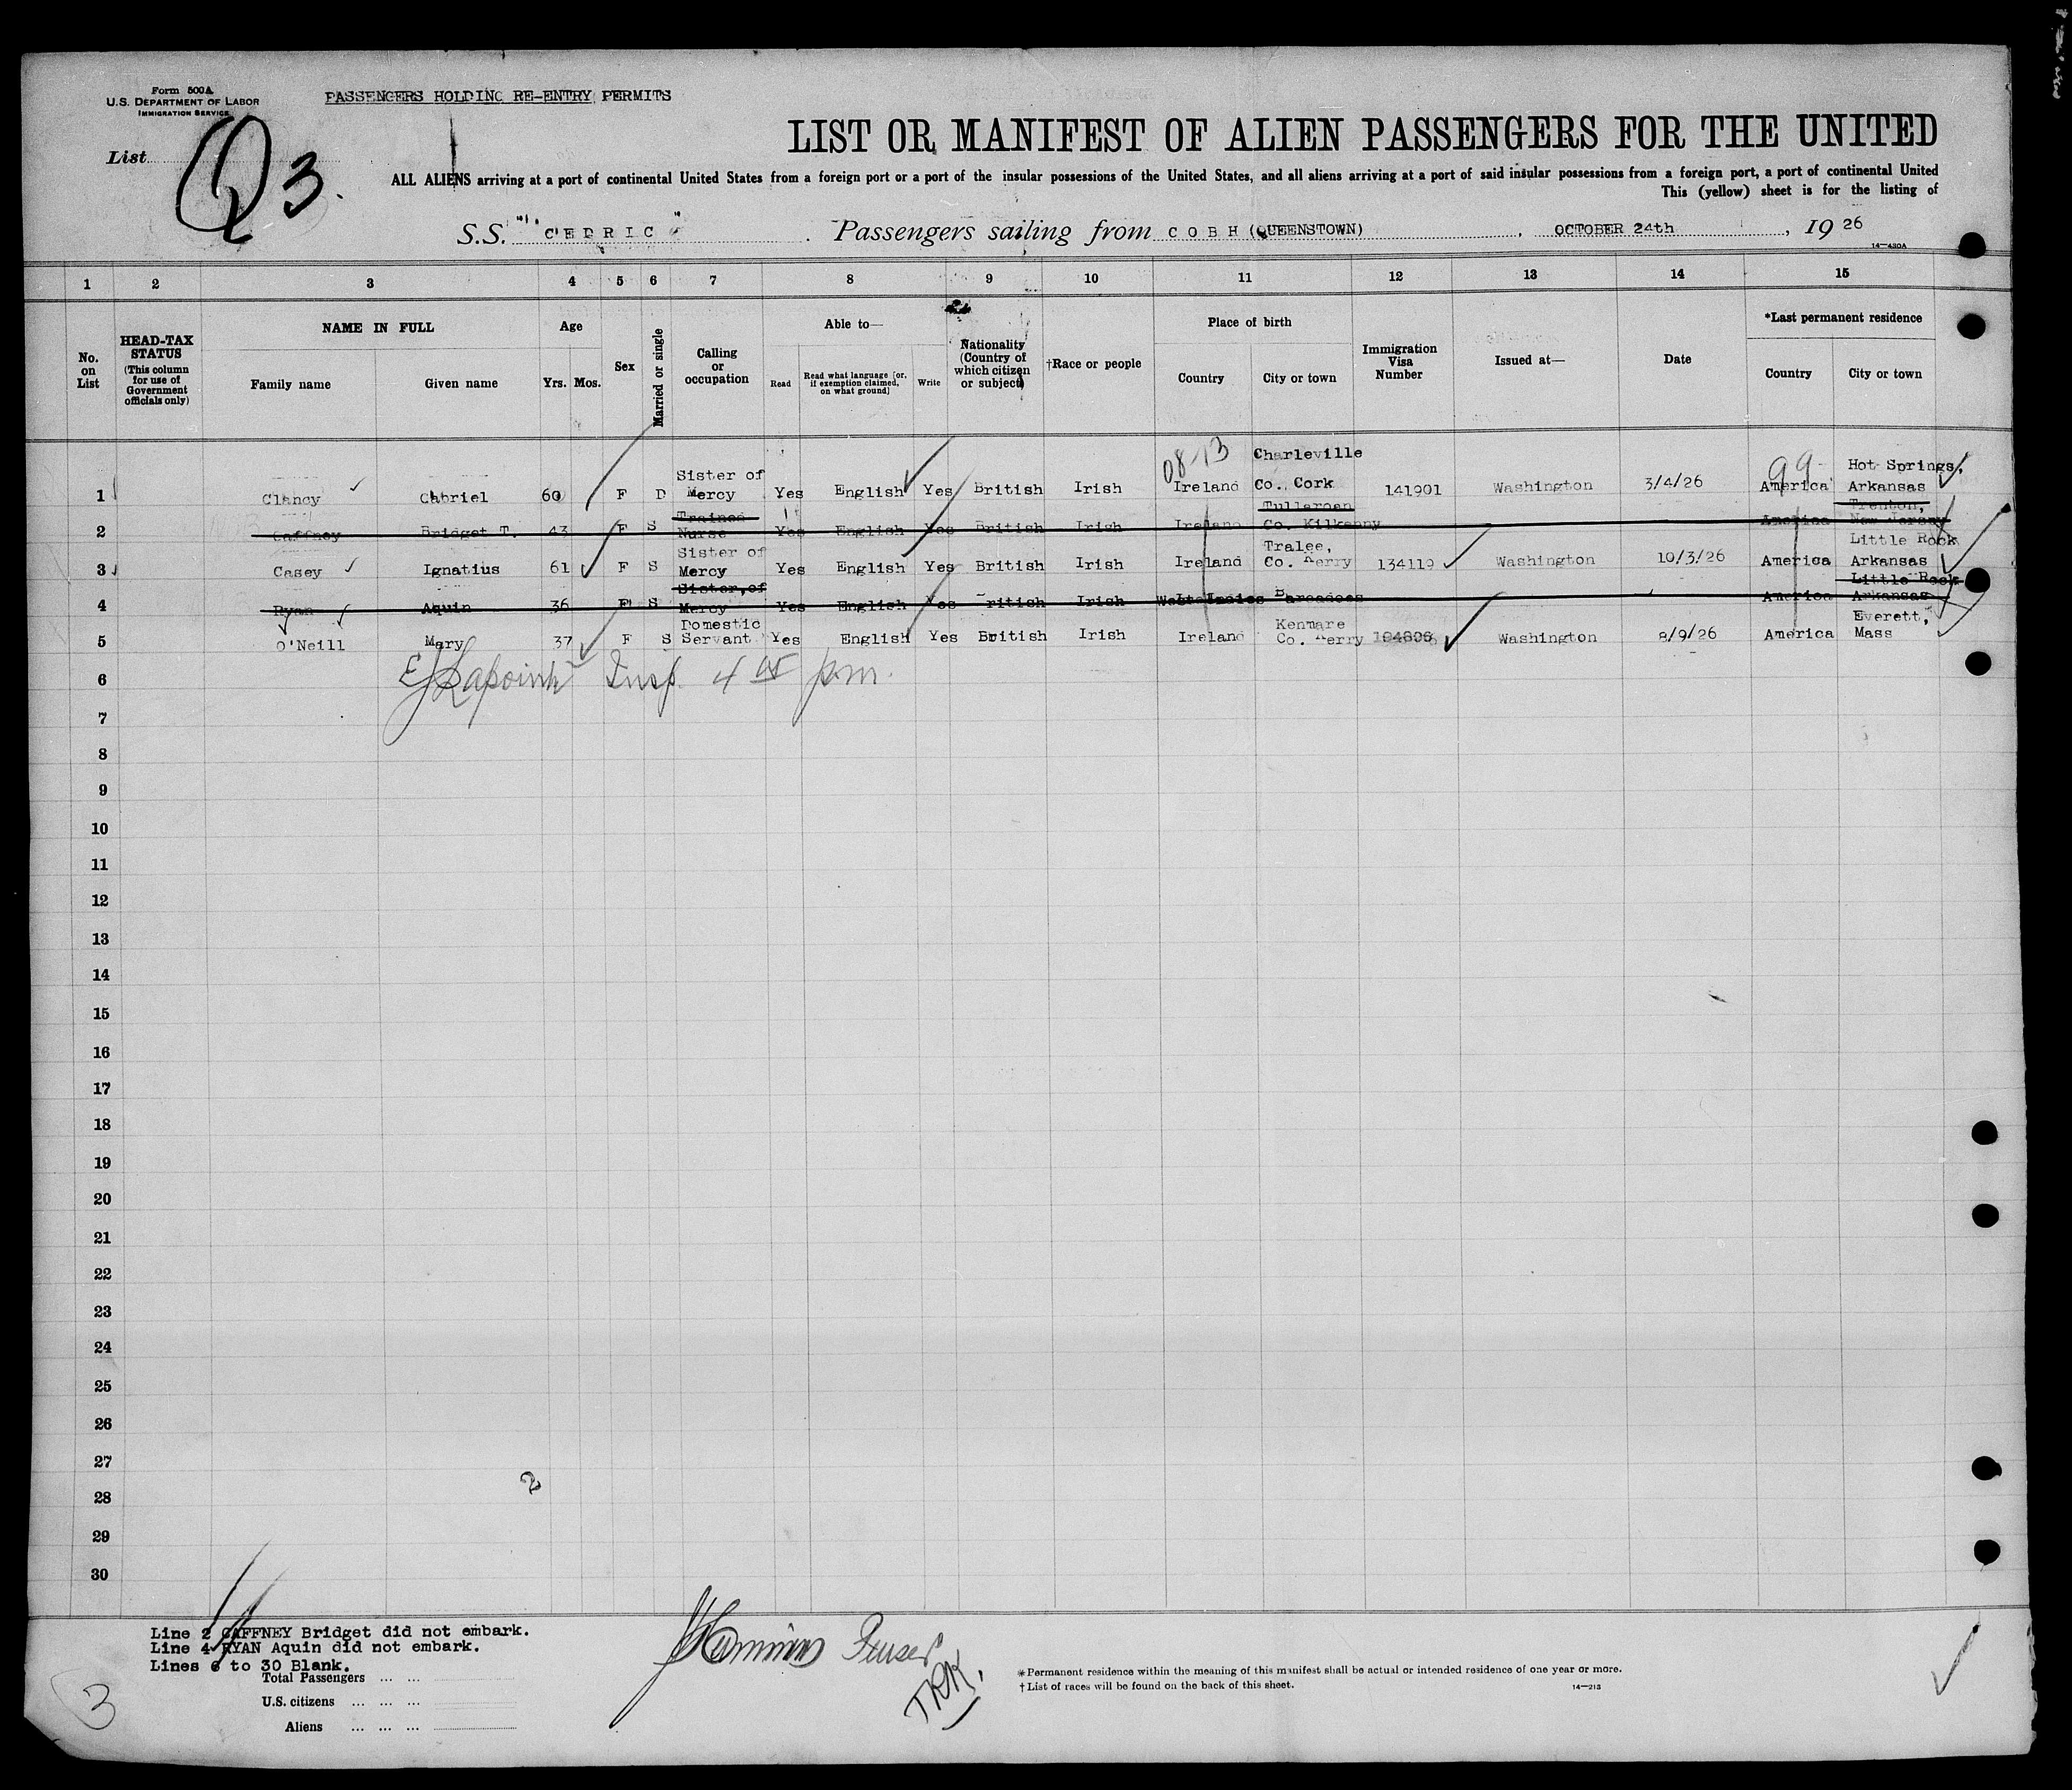 Form 500A
U.S. DEPARTMENT OF LABOR
IMMIGRATION SERVICE
PASSENGERS HOLDING RE-ENTRY PERMITS
List
Q 3.
LIST OR MANIFEST OF ALIEN PASSENGERS FOR THE UNITED
ALL ALIENS arriving at a port of continental United States from a foreign port or a port of the insular possessions of the United States, and all aliens arriving at a port of said insular possessions from a foreign port, a port of continental United
This (yellow) sheet is for the listing of
S.S. "CEDRIC" Passengers sailing from COBH (QUEENSTOWN), OCTOBER 24th, 1926
14—480A
1 2 3 4 5 6 7 8 9 10 11 12 13 14 15
No. on List
HEAD-TAX STATUS (This column for use of Government officials only)
NAME IN FULL
Family name Given name
Age
Yrs. Mos.
Sex
Married or single
Calling or occupation
Able to—
Read
Read what language [or, if exemption claimed, on what ground]
Write
Nationality (Country of which citizen or subject)
†Race or people
Place of birth
Country City or town
Immigration Visa Number
Issued at—
Date
*Last permanent residence
Country City or town
08-13 99
1 Clancy Gabriel 60 F D Sister of Mercy Yes English Yes British Irish Ireland Charleville Co. Cork 141901 Washington 3/4/26 America Hot Springs, Arkansas
2 Gaffney Bridget T. 43 F S Trained Nurse Yes English Yes British Irish Ireland Tullaroan Co. Kilkenny America Trenton, New Jersey
3 Casey Ignatius 61 F S Sister of Mercy Yes English Yes British Irish Ireland Tralee, Co. Kerry 134119 Washington 10/3/26 America Little Rock Arkansas
4 Ryan Aquin 36 F S Sister of Mercy Yes English Yes British Irish West Indies Barbadoes America Little Rock Arkansas
5 O'Neill Mary 37 F S Domestic Servant Yes English Yes British Irish Ireland Kenmare Co. Kerry Washington 8/9/26 America Everett, Mass
6 Lapoint Insp. 4 pm.
7
8
9
10
11
12
13
14
15
16
17
18
19
20
21
22
23
24
25
26
27
28
29
30
2
Line 2 GAFFNEY Bridget did not embark.
Line 4 RYAN Aquin did not embark.
Lines 6 to 30 Blank.
Total Passengers ... ...
U.S. citizens ... ... ...
Aliens ... ... ...
3
*Permanent residence within the meaning of this manifest shall be actual or intended residence of one year or more.
†List of races will be found on the back of this sheet.
14—213